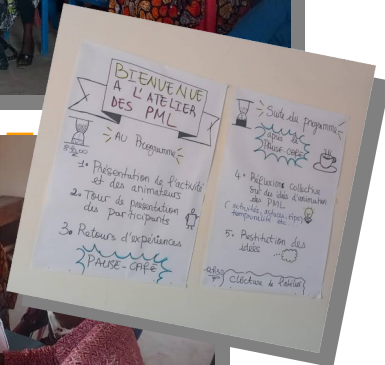 BIENVENUE
A L'ATELIER
DES PML
AU Programme
1. Présentation de l'activité
et des animateurs
2. Tour de présentation
des participants
3. Retours d'expériences
PAUSE-CAFÉ
Suite du programme
après la
PAUSE-CAFÉ
4. Réflexions collective
sur des idées d'animation
des PML
(activités, astuces, tips,
temporalité etc
5. Restitution des
idées
Clôture de l'atelier